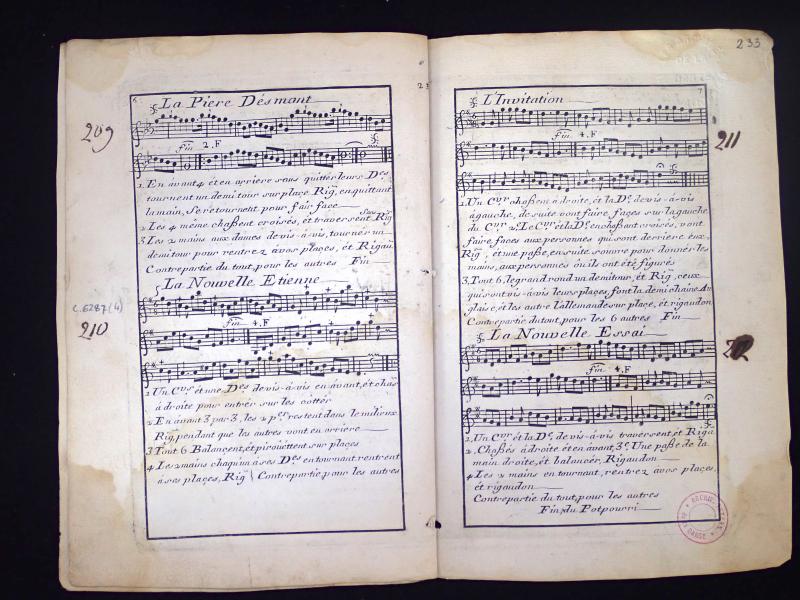 209
6
La Pière Désmant
fin 2.F
1. En avant 4 et en arrière sans quitter leurs Des
tournent un demi tour sur place Rign, en quittant
la main, se retournent pour fair face
2 Les 4 meme chassent croisés, et traversent sans Rig
3 Les 2 mains aux dames de vis-à-vis, tournér un
demi tour pour rentrez à vos places, et Rigau.
Contrepartie du tout, pour les autres Fin
C.6287(4)
210
La Nouvelle Etienne
fin 4.F
1 Un Cer et une Des de vis-à-vis en avant, et chas
à droite pour entrér sur les cottér
2 En avant 3 par 3, les 2 pers restent dans le milieux
Rig, pendant que les autres vont en arriere
3 Tout 6 Balançent, et pirouettent sur places
4 Les 2 mains chaqun à ses Des en tournant, rentrent
à ses places, Rig Contrepartie pour les autres
233
7
211
L'Invitation
fin 4.F
1. Un Cer chassent à droite, et la De de vis-à-vis
à gauche, de suite vont faire faces sur la gauche
du Cer 2. Le Cer et la De en chassant croisés, vont
faire faces aux personnes qui sont derriere eux
Rig, et une passe, en suite s'ouvre pour donnér les
mains, aux personnes où ils ont été figurés
3. Tout 6, le grand rond un demi tour, et Rig, ceux
qui sont vis-à-vis leurs places, font la demi chaine An
glaise, et les autre l'allemande sur place, et rigaudon
Contrepartie du tout, pour les 6 autres Fin
212
La Nouvelle Essai
fin 4.F
1. Un Cer et la De de vis-à-vis traversent, et Riga
2. Chassés à droite et en avant, 3e Une passe de la
main droite, et balancér, Rigaudon
4 Les 2 mains en tournant, rentrez à vos places,
et rigaudon
Contrepartie du tout, pour les autres
Fin, du Potpourri